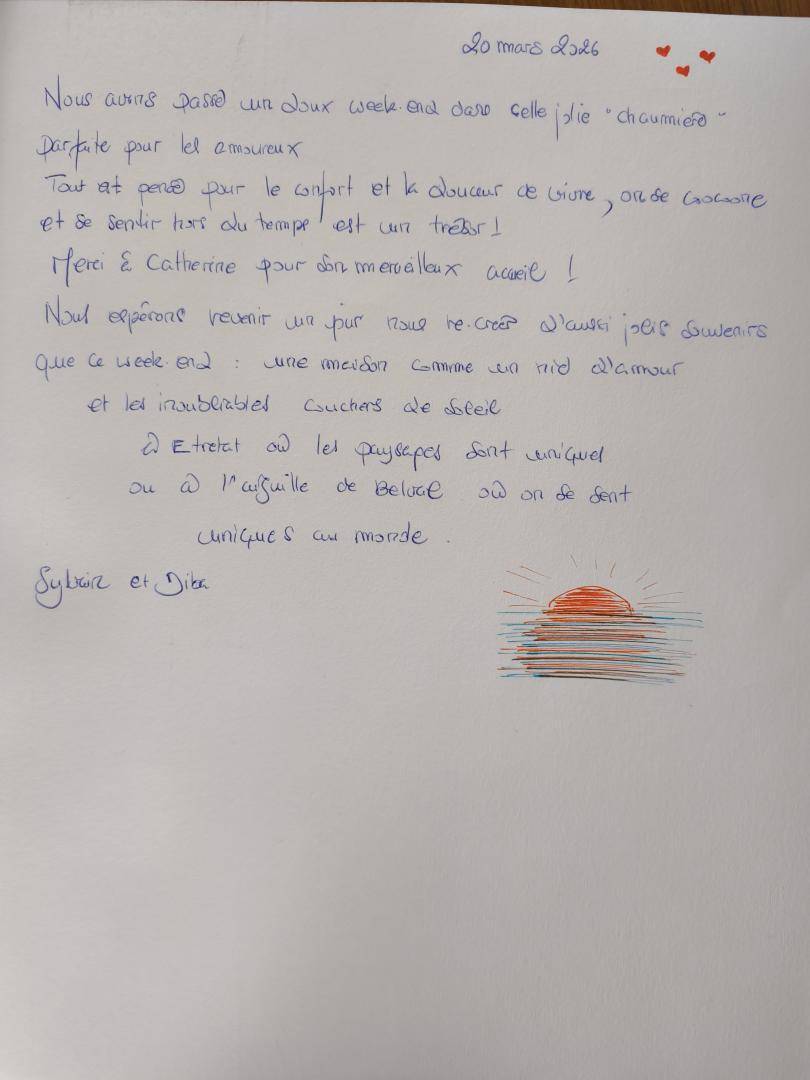 20 mars 2026
Nous avons passé un doux week-end dans cette jolie "chaumière"
parfaite pour les amoureux
Tout est pensé pour le confort et la douceur de vivre, on se cocoone
et se sentir hors du temps est un trésor !
Merci à Catherine pour son merveilleux accueil !
Nous espérons revenir un jour nous re-créer d'aussi jolis souvenirs
que ce week-end : une maison comme un nid d'amour
et les inoubliables couchers de soleil
à Etretat où les paysages sont uniques
ou à l'aiguille de Belval où on se sent
uniques au monde.
Sylvain et Diba